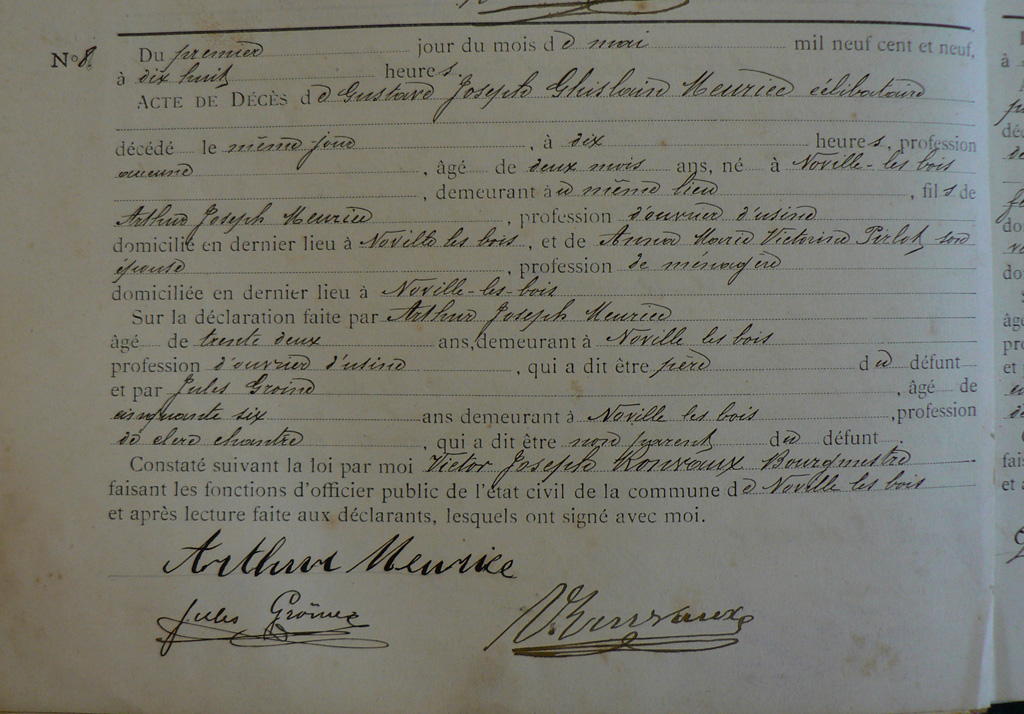 N° 8. Du premier jour du mois de mai mil neuf cent et neuf,
à dix huit heures.
ACTE DE DÉCÈS de Gustave Joseph Ghislain Meurice célibataire
décédé le même jour, à dix heures, profession
aucune, âgé de deux mois ans, né à Noville-les bois
, demeurant au même lieu, fils de
Arthur Joseph Meurice, profession d'ouvrier d'usine
domicilié en dernier lieu à Noville les bois, et de Anna Marie Victorine Pirlot, son
épouse, profession de ménagère
domiciliée en dernier lieu à Noville-les-bois
Sur la déclaration faite par Arthur Joseph Meurice
âgé de trente deux ans, demeurant à Noville les bois
profession d'ouvrier d'usine, qui a dit être père du défunt
et par Jules Groine, âgé de
cinquante six ans demeurant à Noville les bois, profession
de clerc chantre, qui a dit être non parent du défunt.
Constaté suivant la loi par moi Victor Joseph Ronvaux Bourgmestre
faisant les fonctions d'officier public de l'état civil de la commune de Noville les bois
et après lecture faite aux déclarants, lesquels ont signé avec moi.
Arthur Meurice
Jules Groine
V. Ronvaux